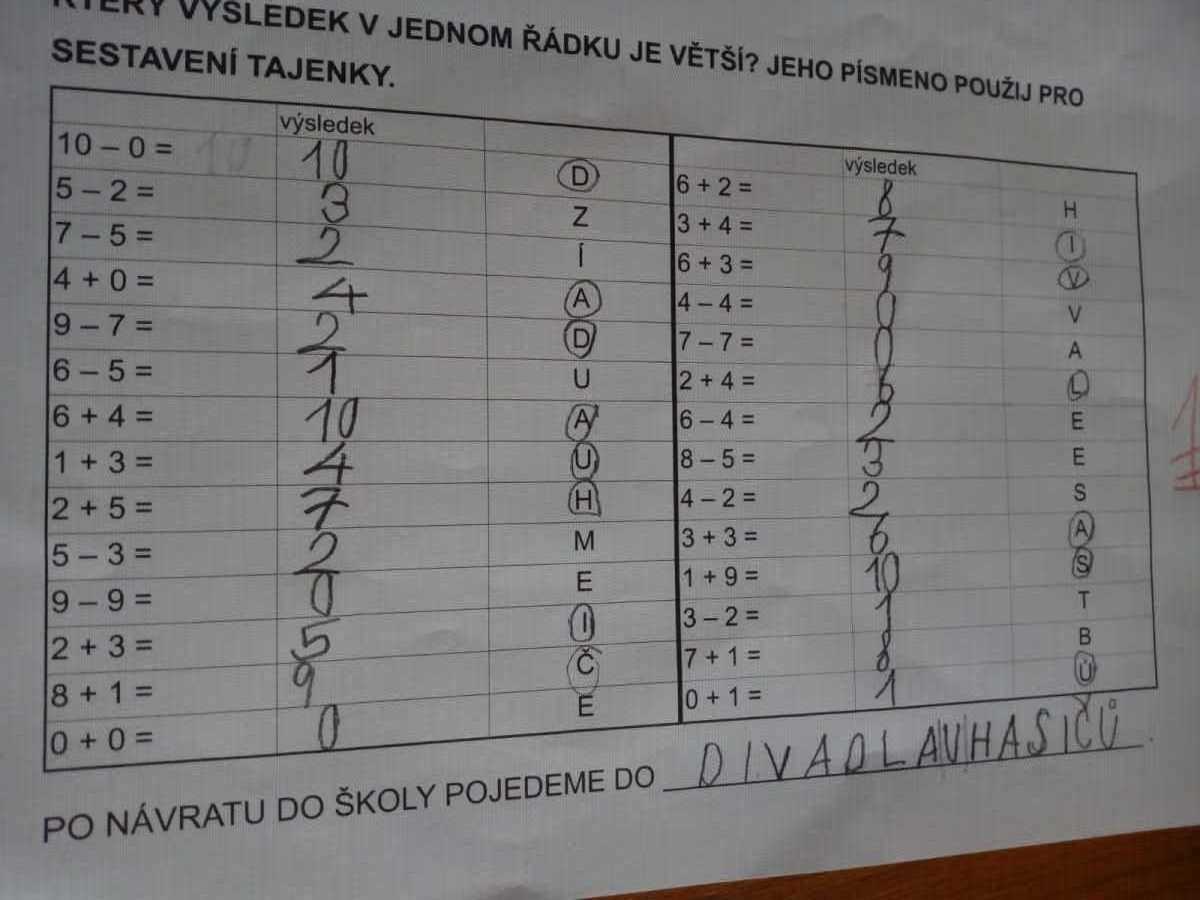 KTERÝ VÝSLEDEK V JEDNOM ŘÁDKU JE VĚTŠÍ? JEHO PÍSMENO POUŽIJ PRO
SESTAVENÍ TAJENKY.
výsledek výsledek
10 – 0 = 10 10 D 6 + 2 = 8 H
5 – 2 = 3 Z 3 + 4 = 7 I
7 – 5 = 2 Í 6 + 3 = 9 V
4 + 0 = 4 A 4 – 4 = 0 V
9 – 7 = 2 D 7 – 7 = 0 A
6 – 5 = 1 U 2 + 4 = 6 L
6 + 4 = 10 A 6 – 4 = 2 E
1 + 3 = 4 U 8 – 5 = 3 E
2 + 5 = 7 H 4 – 2 = 2 S
5 – 3 = 2 M 3 + 3 = 6 A
9 – 9 = 0 E 1 + 9 = 10 S
2 + 3 = 5 I 3 – 2 = 1 T
8 + 1 = 9 Č 7 + 1 = 8 B
0 + 0 = 0 E 0 + 1 = 1 Ů
PO NÁVRATU DO ŠKOLY POJEDEME DO DIVADLAUHASIČŮ.